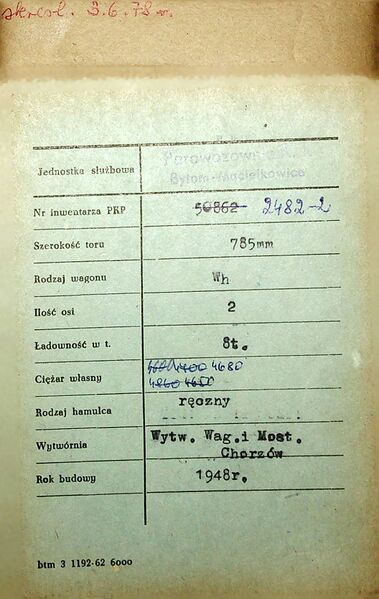 skreśl. 3.6.78 r.
Parowozown
Jednostka służbowa
Bytom-Maciejkowice
Nr inwentarza PKP 50862 2482-2
Szerokość toru 785mm
Rodzaj wagonu Wh
Ilość osi 2
Ładowność w t. 8t.
4700 4680
Ciężar własny 4860 4650
Rodzaj hamulca ręczny
Wytwórnia Wytw. Wag.i Most.
Chorzów
Rok budowy 1948r.
btm 3 1192-62 6000